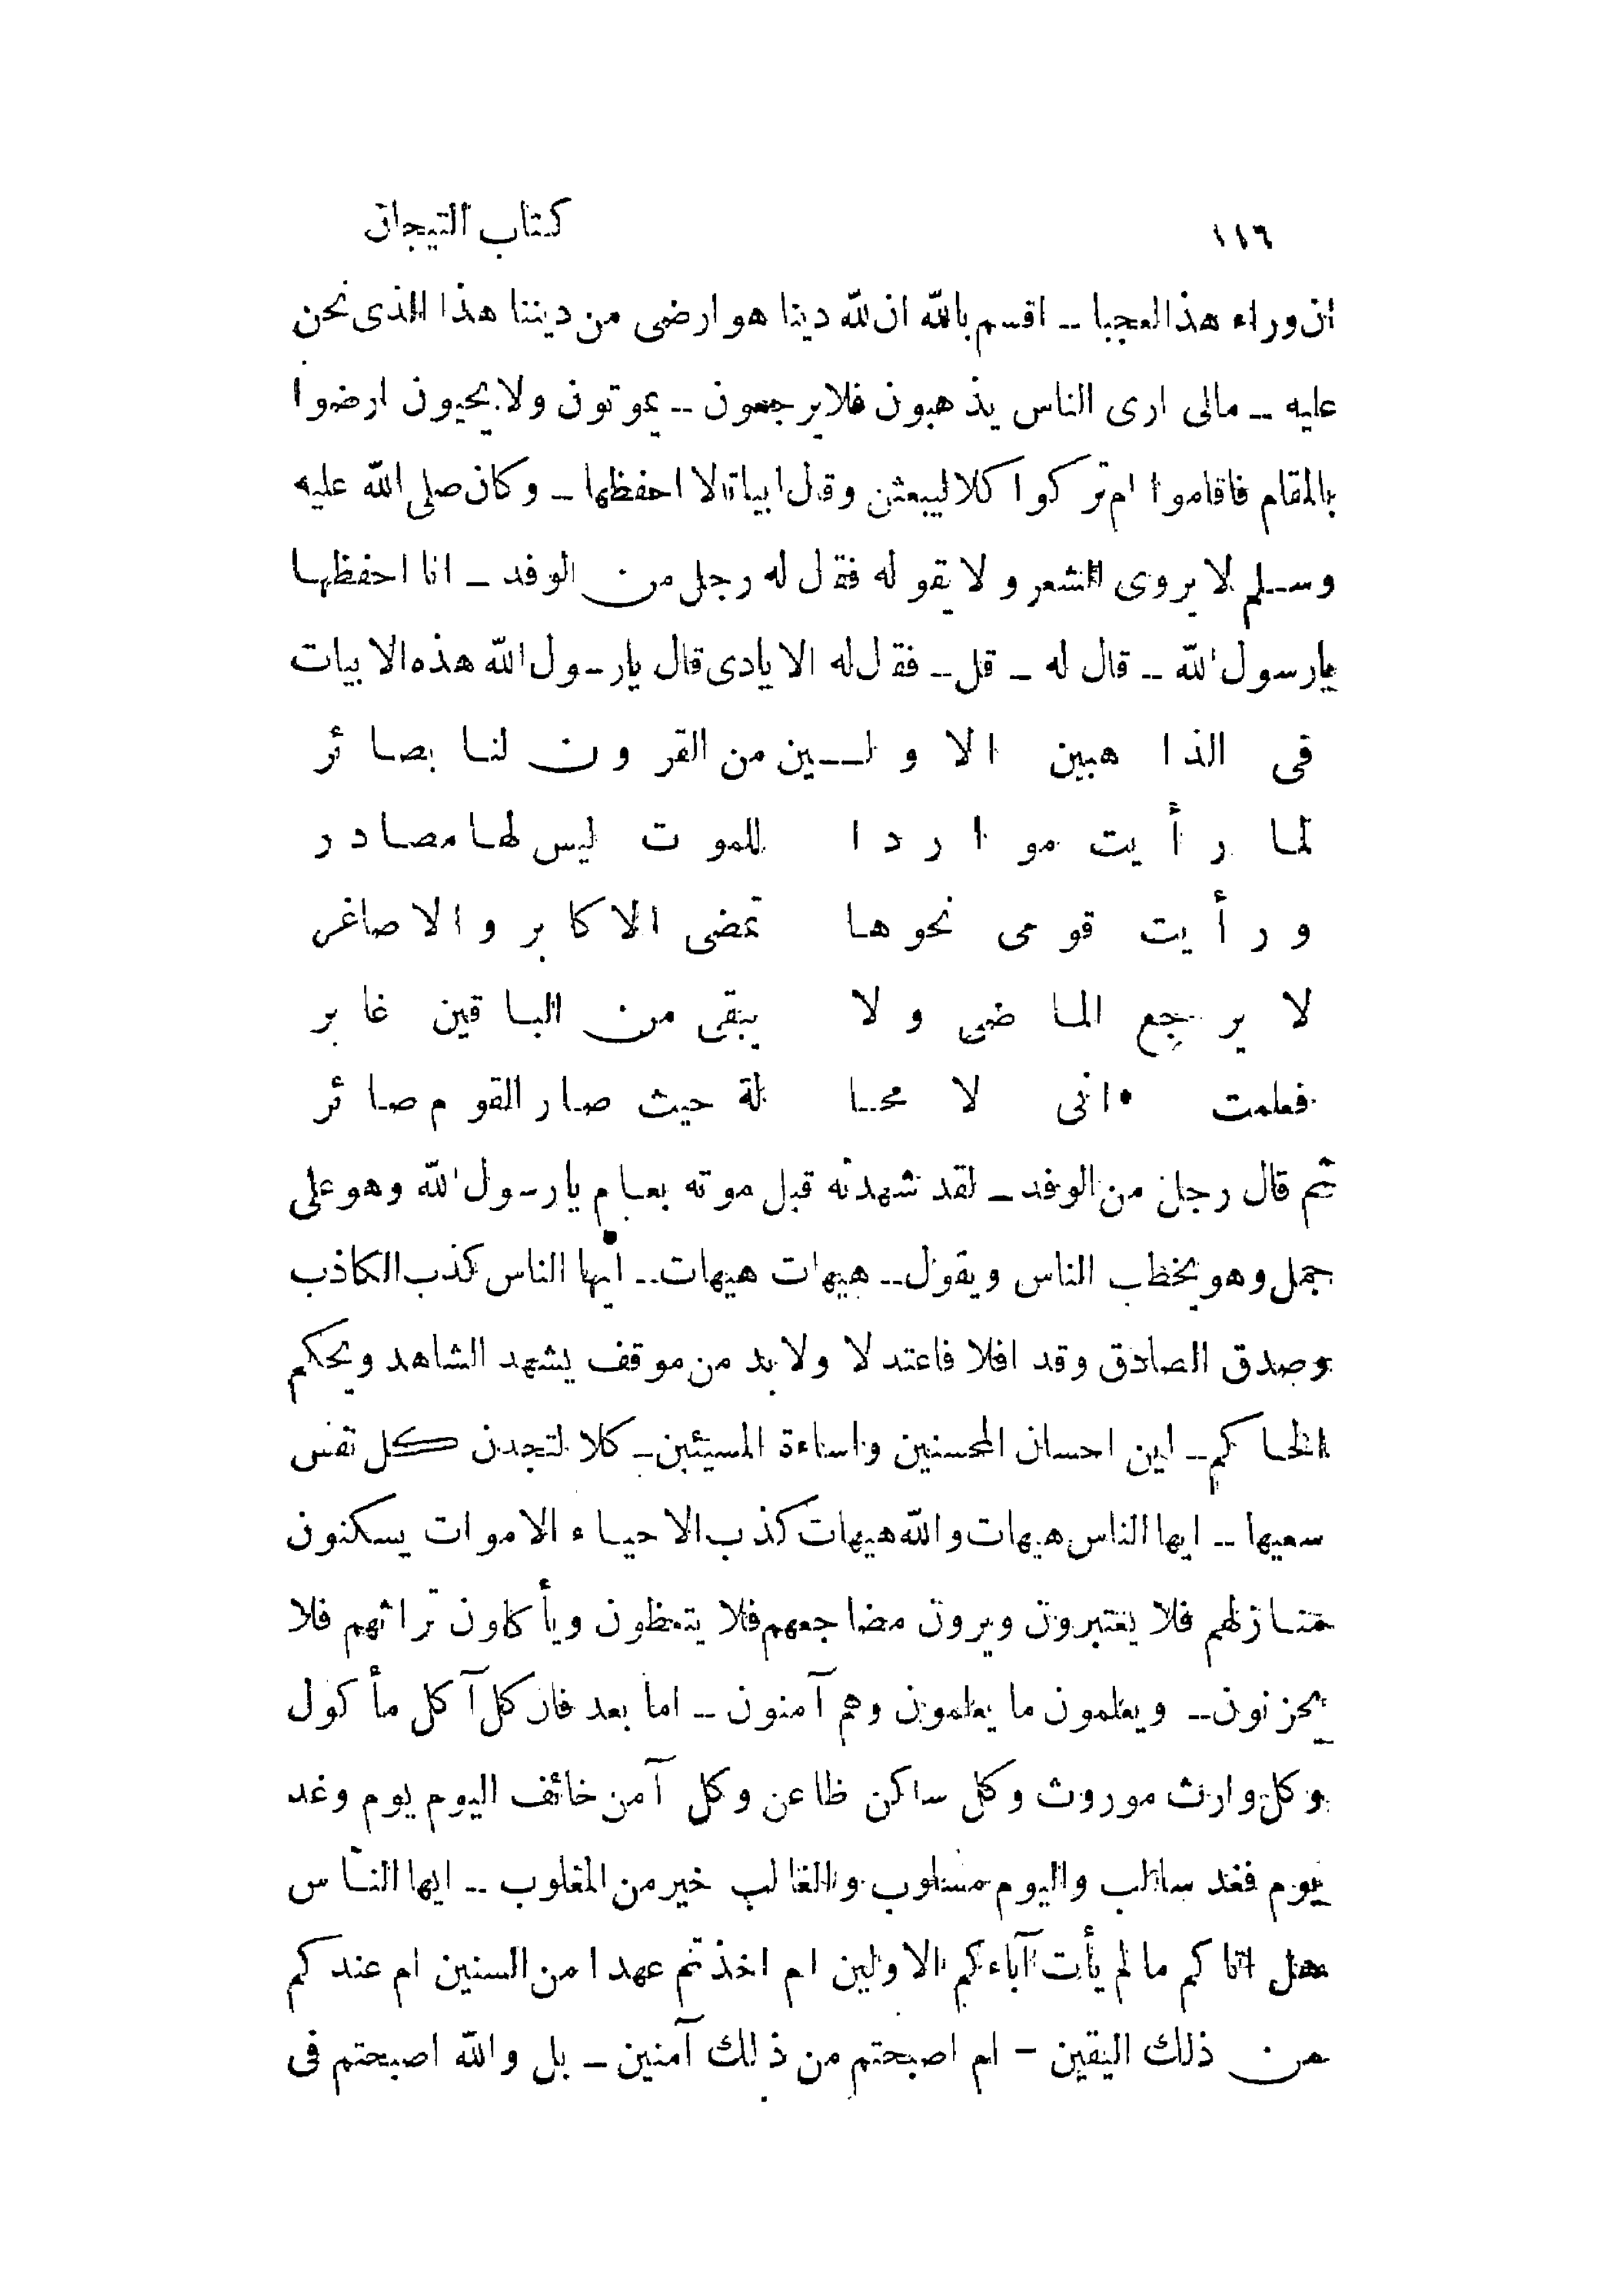 ١١٦ كتاب التيجان
ان وراء هذا لعجبا ـ اقسم بالله ان لله دينا هو ارضى من ديننا هذا الذى نحن
عليه ـ مالى ارى الناس يذهبون فلا يرجعون ـ يموتون ولا يحيون ارضوا
بالمقام فاقاموا ام تركوا كلا ليبعثن وقال ابياتا لا احفظها ـ وكان صلى الله عليه
وسلم لا يروى الشعر ولا يقوله فقال له رجل من الوفد ـ انا احفظها
يا رسول الله ـ قال له ـ قل ـ فقال له الايادى قال يا رسول الله هذه الابيات
فى الذاهبين الاولـين من القرون لنا بصائر
لما رأيت مواردا للموت ليس لها مصادر
ورأيت قومى نحوها تمضى الاكابر والاصاغر
لا يرجع الماضى ولا يبقى من الباقين غابر
فعلمت انى لا محا لة حيث صار القوم صائر
ثم قال رجل من الوفد ـ لقد شهدته قبل موته بعام يا رسول الله وهو على
جمل وهو يخطب الناس ويقول ـ هيهات هيهات ـ ايها الناس كذب الكاذب
وصدق الصادق وقد افلا فاعتدلا ولا بد من موقف يشهد الشاهد ويحكم
الحاكم ـ اين احسان المحسنين واساءة المسيئين ـ كلا لتجدن كل نفس
سعيها ـ ايها الناس هيهات والله هيهات كذب الاحياء الاموات يسكنون
منازلهم فلا يعتبرون ويرون مضاجعهم فلا يتعظون ويأكلون تراثهم فلا
يحزنون ـ ويعلمون ما يعلمون وهم آمنون ـ اما بعد فان كل آكل مأكول
وكل وارث موروث وكل ساكن ظاعن وكل آمن خائف اليوم يوم وغد
يوم فغد سالب واليوم مسلوب والغالب خير من المغلوب ـ ايها الناس
هل اتاكم ما لم يأت آباءكم الاولين ام اخذتم عهدا من السنين ام عندكم
من ذلك اليقين - ام اصبحتم من ذلك آمنين ـ بل والله اصبحتم فى